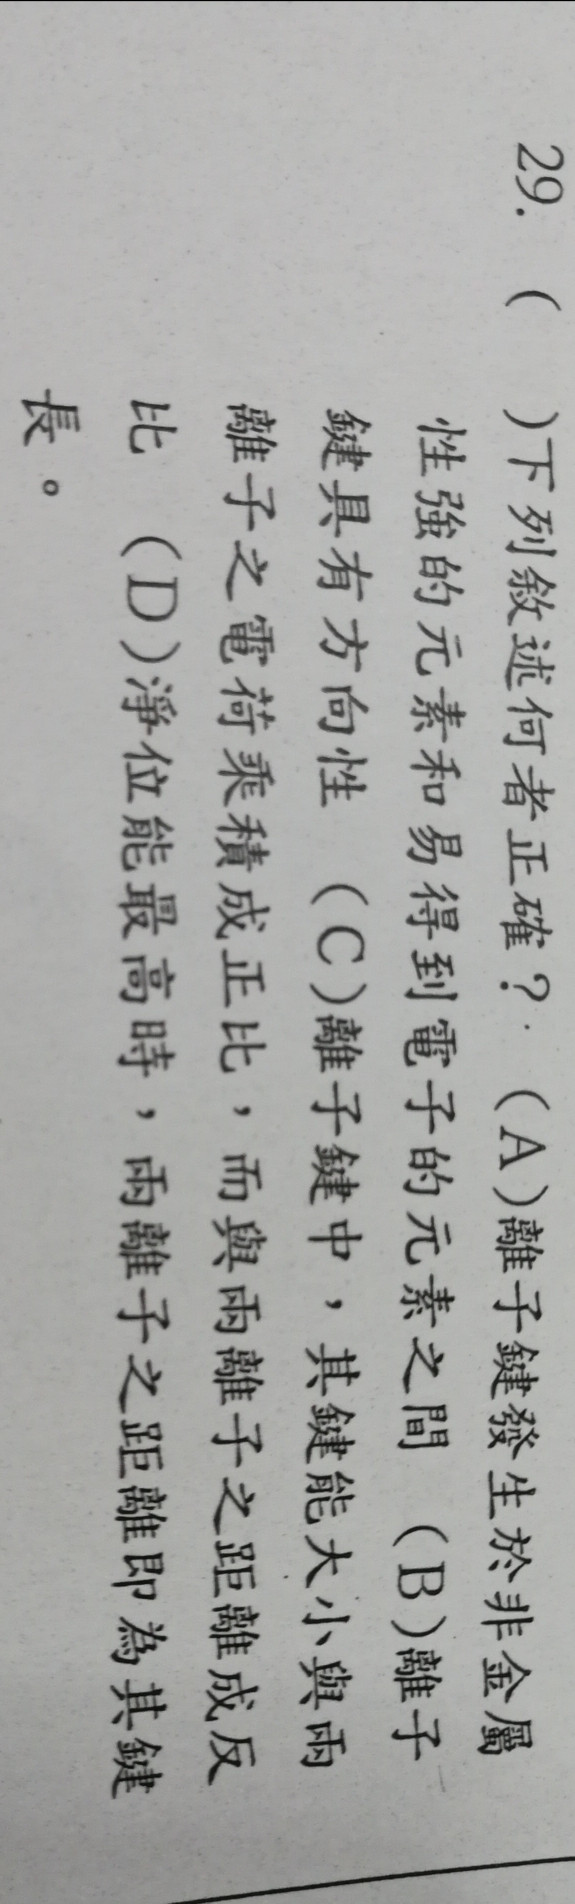 29. (　)下列敘述何者正確？ (A)離子鍵發生於非金屬
性強的元素和易得到電子的元素之間 (B)離子
鍵具有方向性 (C)離子鍵中，其鍵能大小與兩
離子之電荷乘積成正比，而與兩離子之距離成反
比 (D)淨位能最高時，兩離子之距離即為其鍵
長。